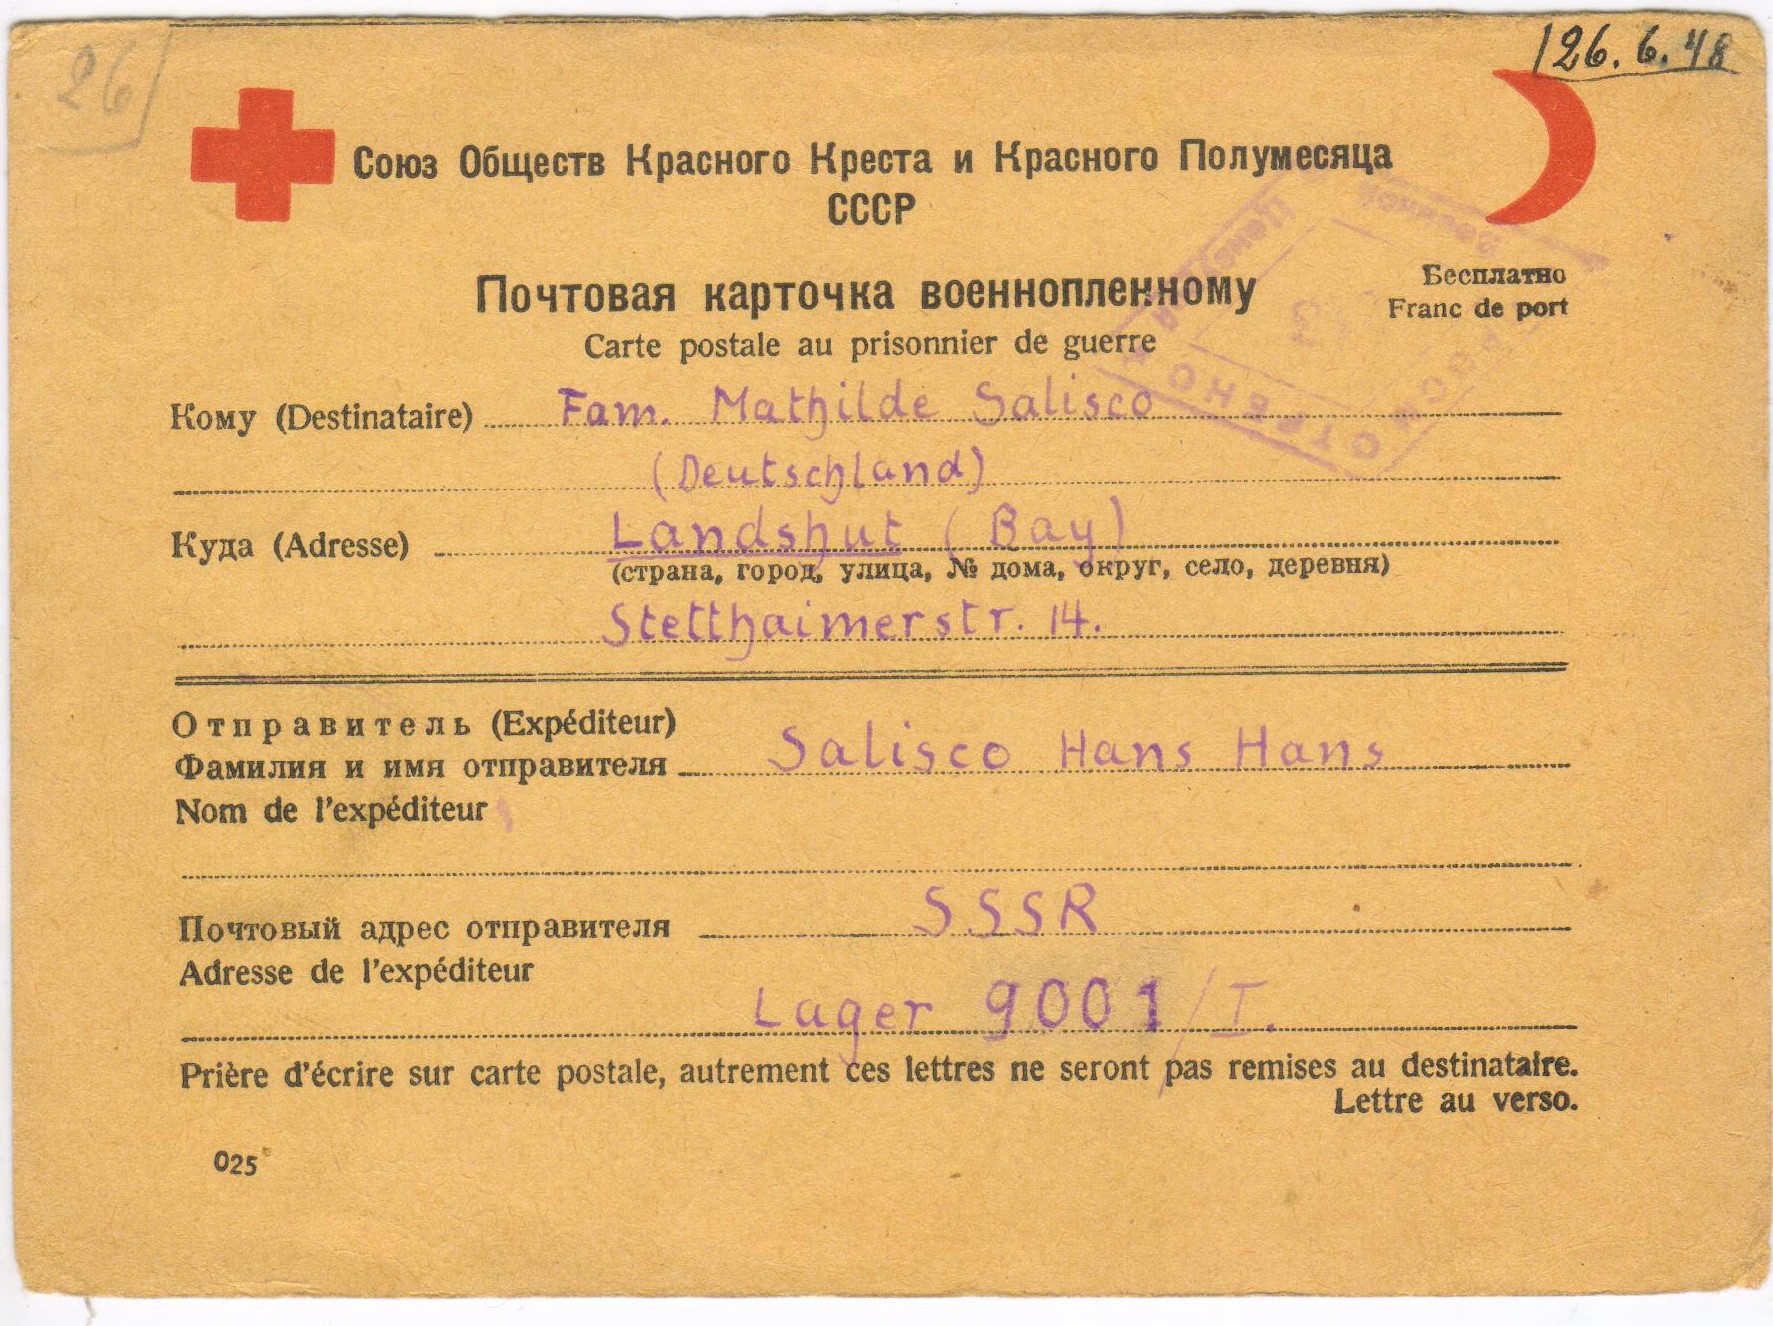 26
26.6.48
Союз Обществ Красного Креста и Красного Полумесяца
СССР
Почтовая карточка военнопленному
Carte postale au prisonnier de guerre
Бесплатно
Franc de port
Кому (Destinataire) Fam. Mathilde Salisco
(Deutschland)
Куда (Adresse) Landshut (Bay)
(страна, город, улица, № дома, округ, село, деревня)
Stetthaimerstr. 14.
Отправитель (Expéditeur)
Фамилия и имя отправителя Salisco Hans Hans
Nom de l'expéditeur
Почтовый адрес отправителя SSSR
Adresse de l'expéditeur
Lager 9001/I.
Prière d'écrire sur carte postale, autrement ces lettres ne seront pas remises au destinataire.
Lettre au verso.
025